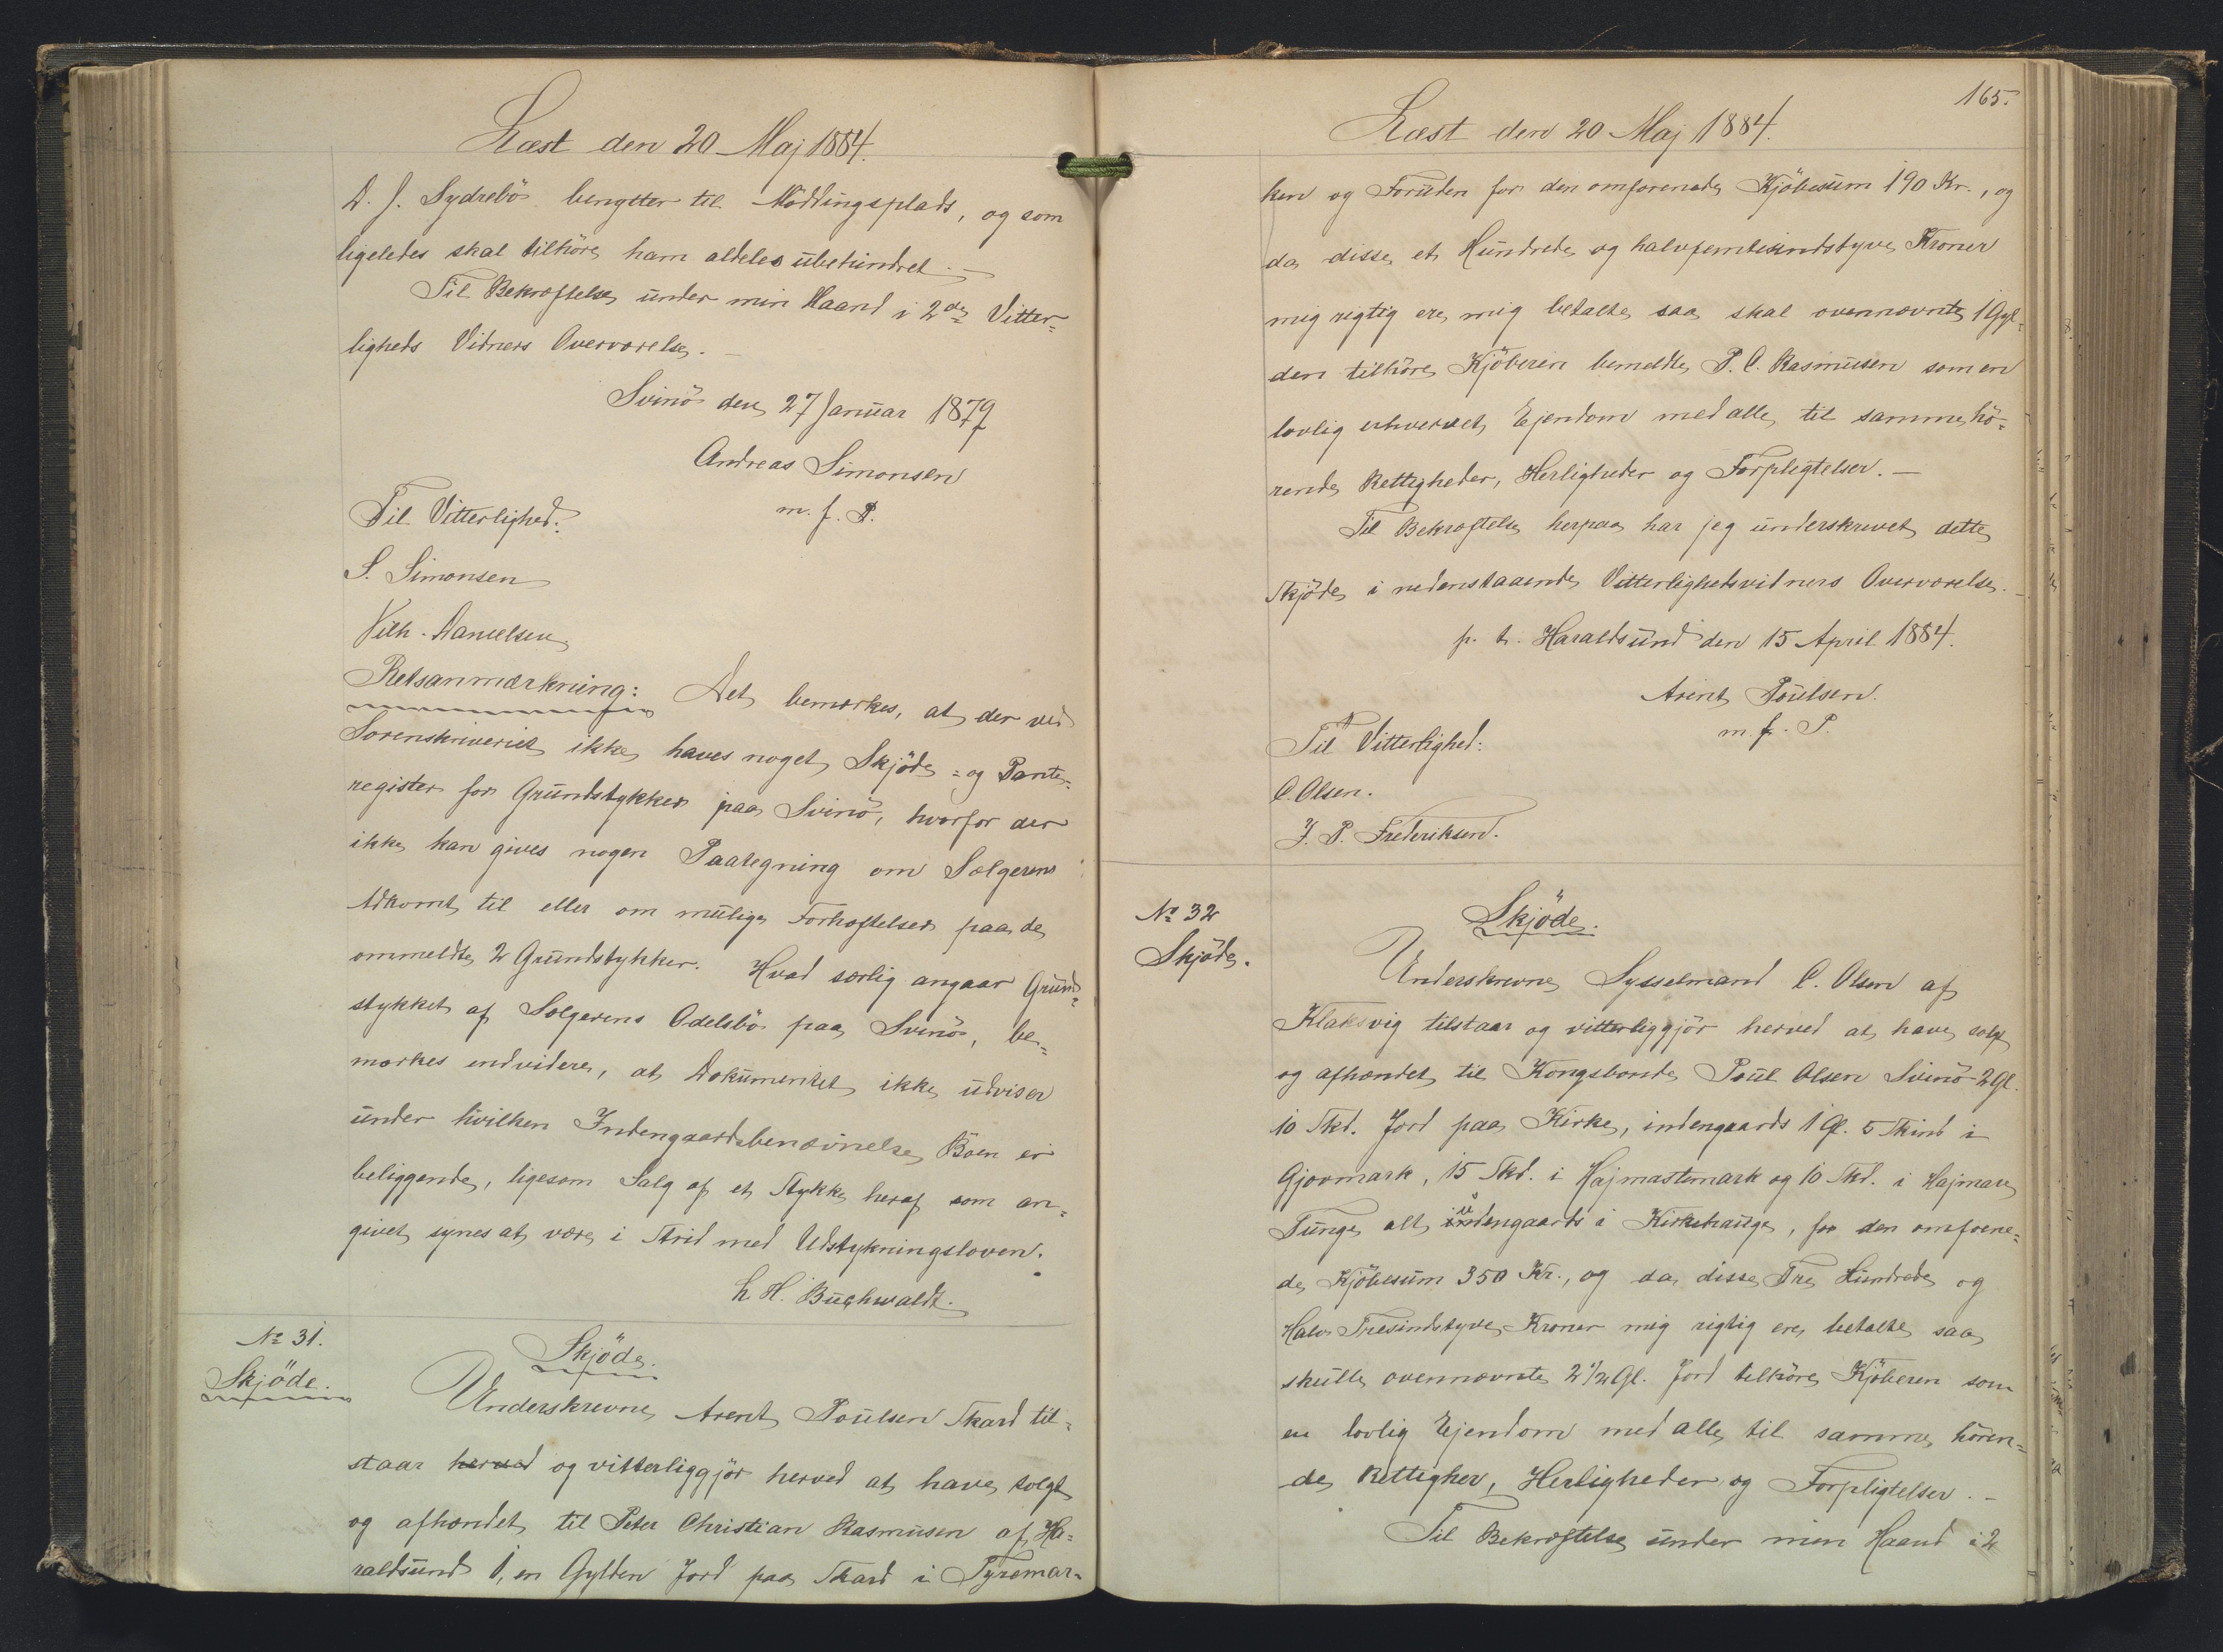 Læst den 20 Maj 1884.
D. J. Sydrebö benytter til Möddingsplads, og som
ligeledes skal tilhöre ham aldeles ubehindret. —
Til Bekræftelse under min Haand i 2de Vitter-
ligheds Vidners Overværelse. —
Svinö den 27 Januar 1879
Andreas Simonsen
m. f. P.
Til Vitterlighed:
S. Simonsen
Vilh. Danielsen.
Retsanmærkning: Det bemærkes, at der ved
Sorenskriveriet ikke haves noget Skjöde- og Pante-
register for Grundstykker paa Svinö, hvorfor der
ikke kan gives nogen Paategning om Sælgerens
Adkomst til eller om mulige Forhæftelser paa de
ommeldte 2 Grundstykker. Hvad særlig angaar Grund-
stykket af Sælgerens Odelsbö paa Svinö, be-
mærkes endvidere, at Dokumentet ikke udviser
under hvilken Indengaardsbenævnelse Böen er
beliggende, ligesom Salg af et Stykke heraf som an-
givet synes at være i Strid med Udstykningsloven.
L. H. Buchwaldt.
No 31.
Skjöde.
Skjöde.
Underskrevne Arent Poulsen Skard til-
staar herved og vitterliggjör herved at have solgt
og afhændet til Peter Christian Rasmusen af Ha-
raldsund 1, en Gylden Jord paa Skard i Tyremar-
165.
Læst den 20 Maj 1884.
ken og Foruden for den omforenede Kjöbesum 190 Kr., og
da disse et Hundrede og halvfemtesindstyve Kroner
mig rigtig ere mig betalte saa skal ovennævnte 1 Gyl-
den tilhöre Kjöberen bemeldte P. C. Rasmusen som en
lovlig erhvervet Ejendom med alle til samme hö-
rende Rettigheder, Herligheder og Forpligtelser. —
Til Bekræftelse herpaa har jeg underskrevet dette
Skjöde i nedenstaaende Vitterlighedsvidners Overværelse. —
p. t. Haraldsund den 15 April 1884.
Arent Poulsen.
m. f. P.
Til Vitterlighed:
C. Olsen.
J. P. Frederiksen.
No 32
Skjöde.
Skjöde.
Underskrevne Sysselmand C. Olsen af
Klaksvig tilstaar og vitterliggjör herved at have solgt
og afhændet til Kongsbonde Poul Olsen Svinö 2 Gl.
10 Skd. Jord paa Kirke, indengaards 1 Gl. 5 Skind i
Gjovmark, 15 Skd. i Hajmastemark og 10 Skd. i Hajmare
Tunge alt udengaards i Kirkehauge, for den omforene-
de Kjöbesum 350 Kr., og da disse Tre Hundrede og
Halv Tresindstyve Kroner mig rigtig ere betalte saa
skulle ovennævnte 2 1/2 Gl. Jord tilhöre Kjöberen som
en lovlig Ejendom med alle til samme hören-
de Rettigher, Herligheder og Forpligtelser. —
Til Bekræftelse under min Haand i 2